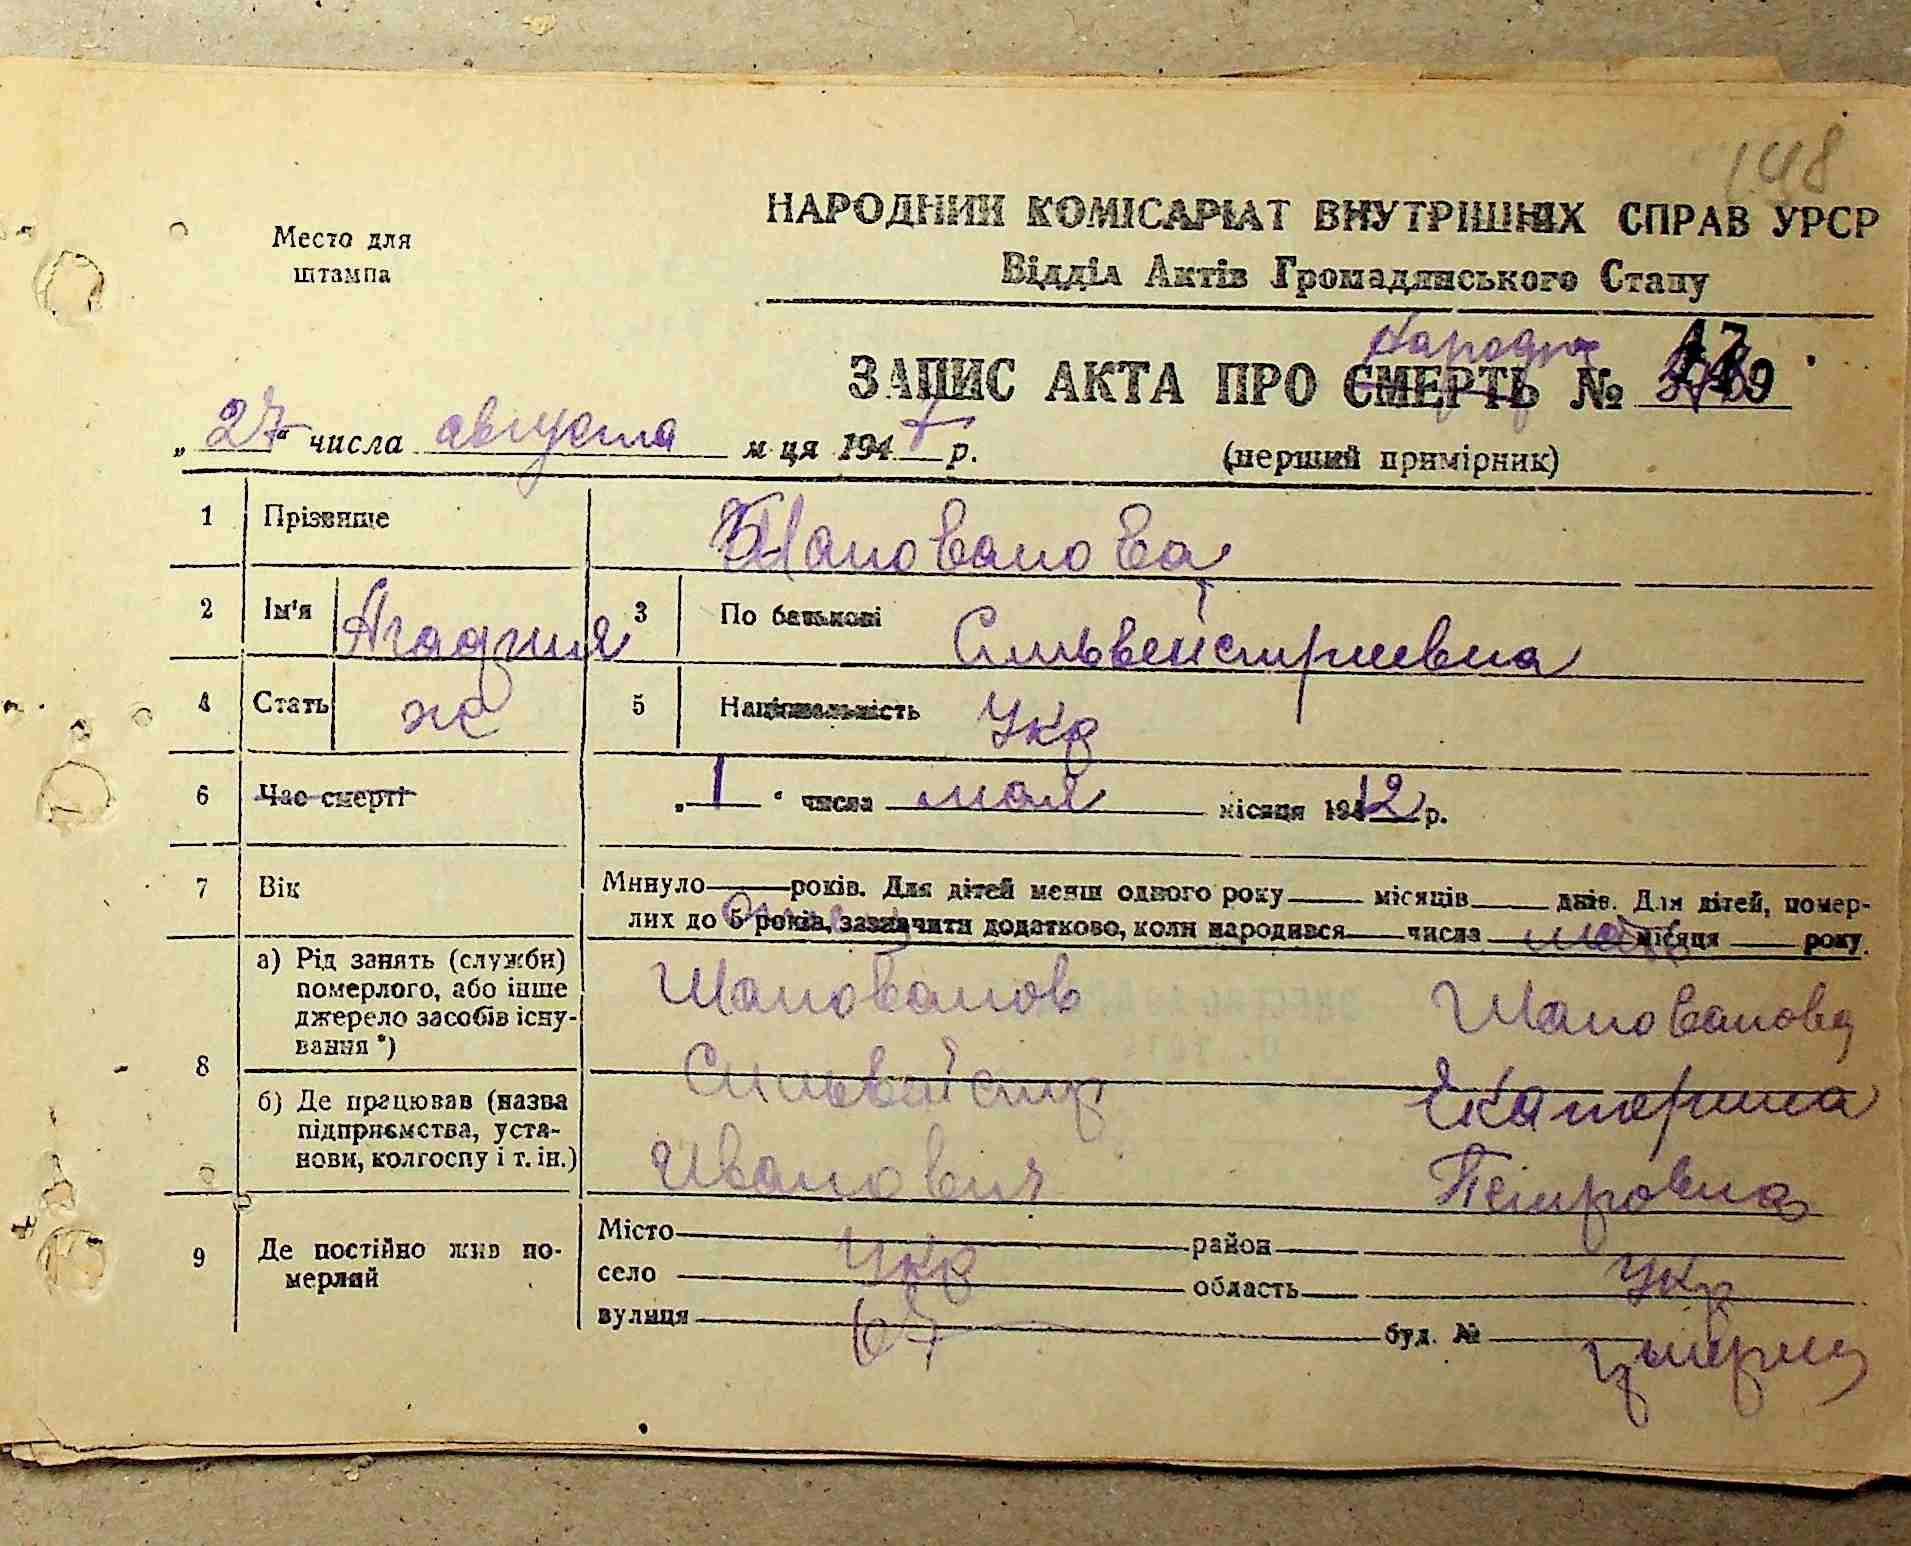 148
Место для
штампа
НАРОДНИЙ КОМІСАРІАТ ВНУТРІШНІХ СПРАВ УРСР
Відділ Актів Громадянського Стану
ЗАПИС АКТА ПРО СМЕРТЬ №
„27“ числа августа м-ця 1947 р.
(перший примірник)
1 Прізвище Шаповалова
2 Ім'я 3 По батькові Сильвейстриевна
4 Стать ж 5 Національність Укр
6 Час смерті „1“ числа мая місяця 1912 р.
7 Вік Минуло року років. Для дітей менш одного року місяців днів. Для дітей, помер-
лих до 5 років, зазначити додатково, коли народився числа місяця року.
8 а) Рід занять (служби)
померлого, або інше
джерело засобів існу-
вання *)
б) Де працював (назва
підприємства, уста-
нови, колгоспу і т. ін.)
Шаповалов Шаповалова
Сильвейстр Екатерина
Иванович Петровна
9 Де постійно жив по-
мерлий
Місто район
село Укр область Укр
вулиця буд. №
умерла